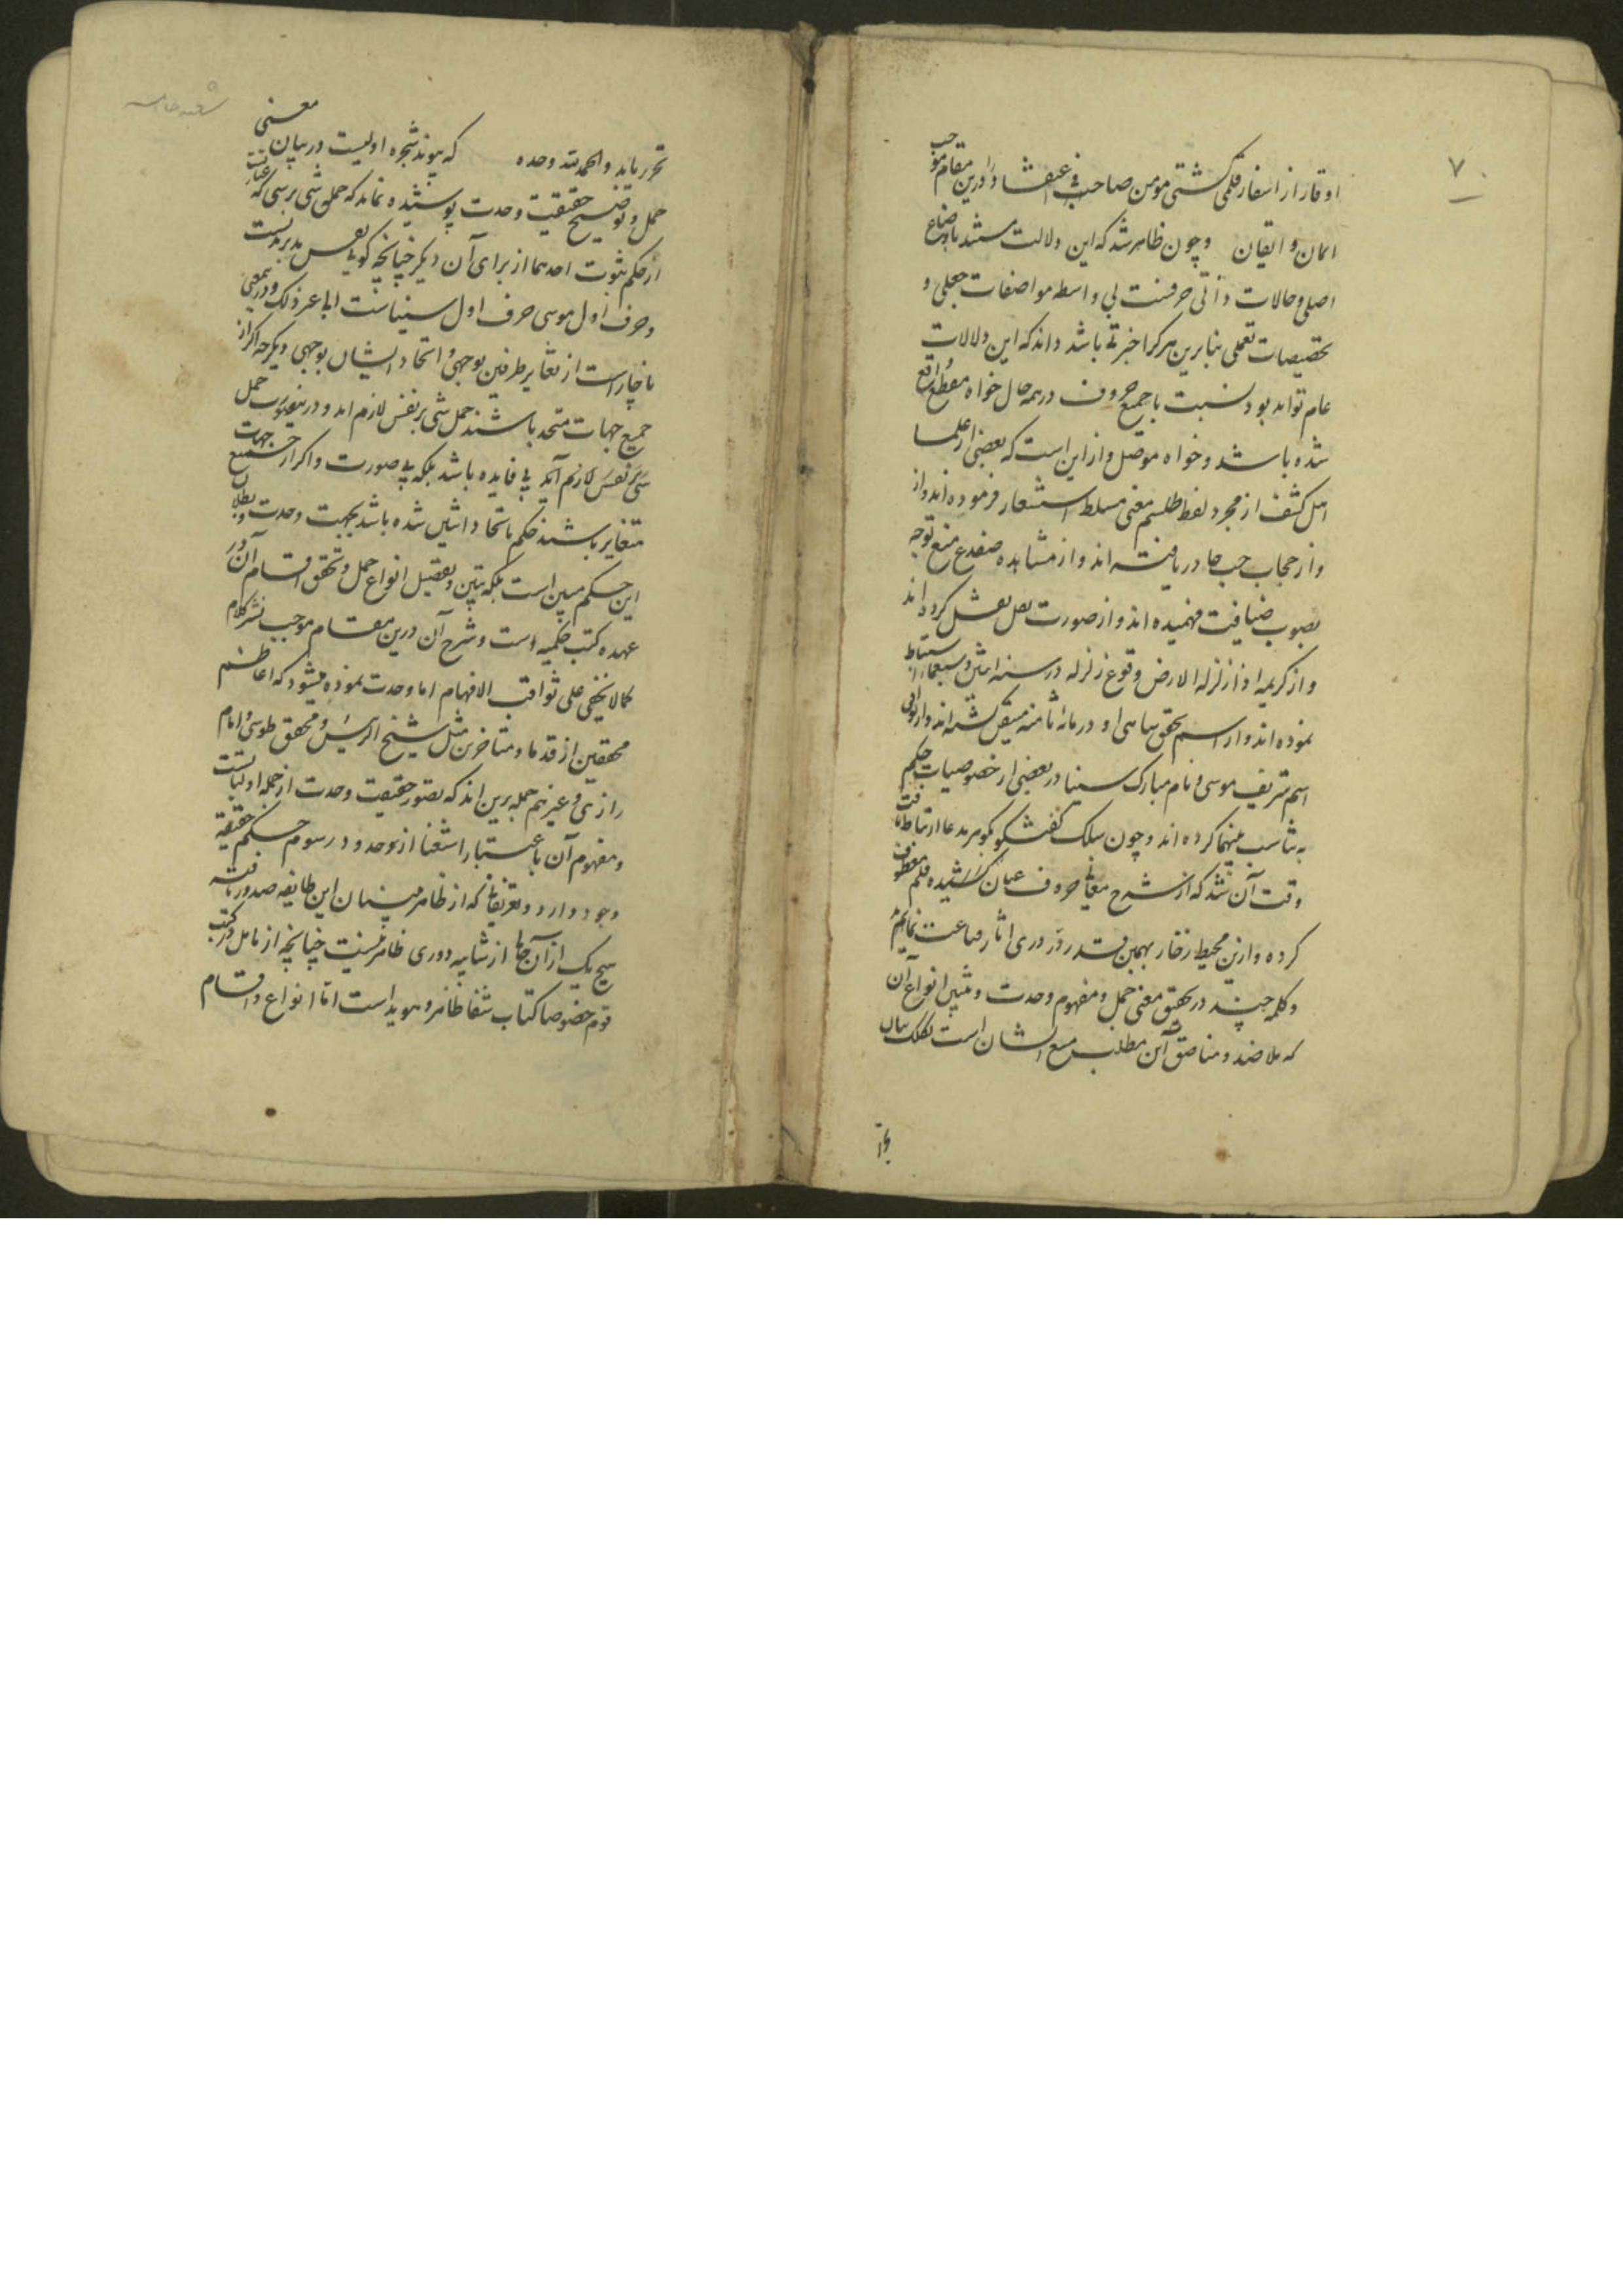 ۷
اوقار از اسفار فلمی کشتی مومن صاحب درین مقام موجب
ایمان و ایقان وچون ظاهر شد که این دلالت مستند باوضاع
اصلی و حالات ذاتی حرفست بی واسطه مواضعات جعلی و
تخصیصات تعملی بنابرین هرکرا خبرتی باشد داند که این دلالات
عام تواند بود نسبت با جمیع حروف در همه حال خواه مقطع واقع
شده باشد و خواه موصل و ازاین است که بعضی از علما
اهل کشف از مجرد لفظ طلسم معنی مسلط استشعار فرموده اند و از
و از حجاب حب جا دریافته اند و از مشاهده ضفدع منع توجه
بصوب ضیافت فهمیده اند و از صورت کرده اند
و از کریمه اذا زلزله الارض وقوع زلزله در سنه اثنی و سبعمائه استنباط
نموده اند و از اسم او در مائه ثامنه گشته اند و از توافق
اسم شریف موسی و نام مبارک سینا در بعضی از خصوصیات حکم
به تناسب بینهما کرده اند وچون سلک گفتگو بگوهر مدعا ارتباط یافت
وقت آن شد که از شرح معانی حروف عنان کشیده قلم معطوف
کرده و ازین محیط زخار بهمین قدر در دری اثار قناعت نمایم
و کلمه چند در تحقیق معنی حمل و مفهوم وحدت و تبیین انواع آن
که ملاحده و مناصق این مطلب مع الشان است بکلک بیان
شعبه خامسه
تحریر یابد والحمد لله وحده که پیوند شجره اولیست در بیان معنی
حمل و توضیح حقیقت وحدت پوشیده نماند که حمل شی بر شی که عبارتست
از حکم بثبوت احدهما از برای آن دیگر چنانچه گویی
و حرف اول موسی حرف اول سیناست الی غیر ذلک و در معنی
ناچار است از تغایر طرفین بوجهی و اتحاد ایشان بوجهی دیگر چه اگر از
جمیع جهات متحد باشند حمل شی بر نفس لازم اید و درینصورت حمل
شی بر نفس لازم آید بی فایده باشد بلکه بی صورت و اگر از جمیع جهات
متغایر باشند حکم باتحاد اشیای شده باشد بجهت وحدت و بطلان
این حکم مبین است بلکه تبیین و تفصیل انواع حمل و تحقق اقسام آن در
عهده کتب حکمیه است و شرح آن درین مقام موجب نشر کلام
کما لا یخفی علی ثواقب الافهام اما وحدت نموده میشود که اعاظم
محققین از قدما و متاخرین مثل شیخ الرئیس و محقق طوسی و امام
رازی و غیرهم جمله برین اند که تصور حقیقت وحدت از جمله اولیاتست
و مفهوم آن باعتبار استغنا از وحدود و رسوم حکم حقیقة
وجود دارد و تعریفاتی که از ظاهر بینان این طایفه صدور یافته
هیچ یک از آن جمله از شایبه دوری ظاهر نیست چنانچه از تامل در کتب
قوم خصوصا کتاب شفا ظاهر و هویداست اما انواع و اقسام